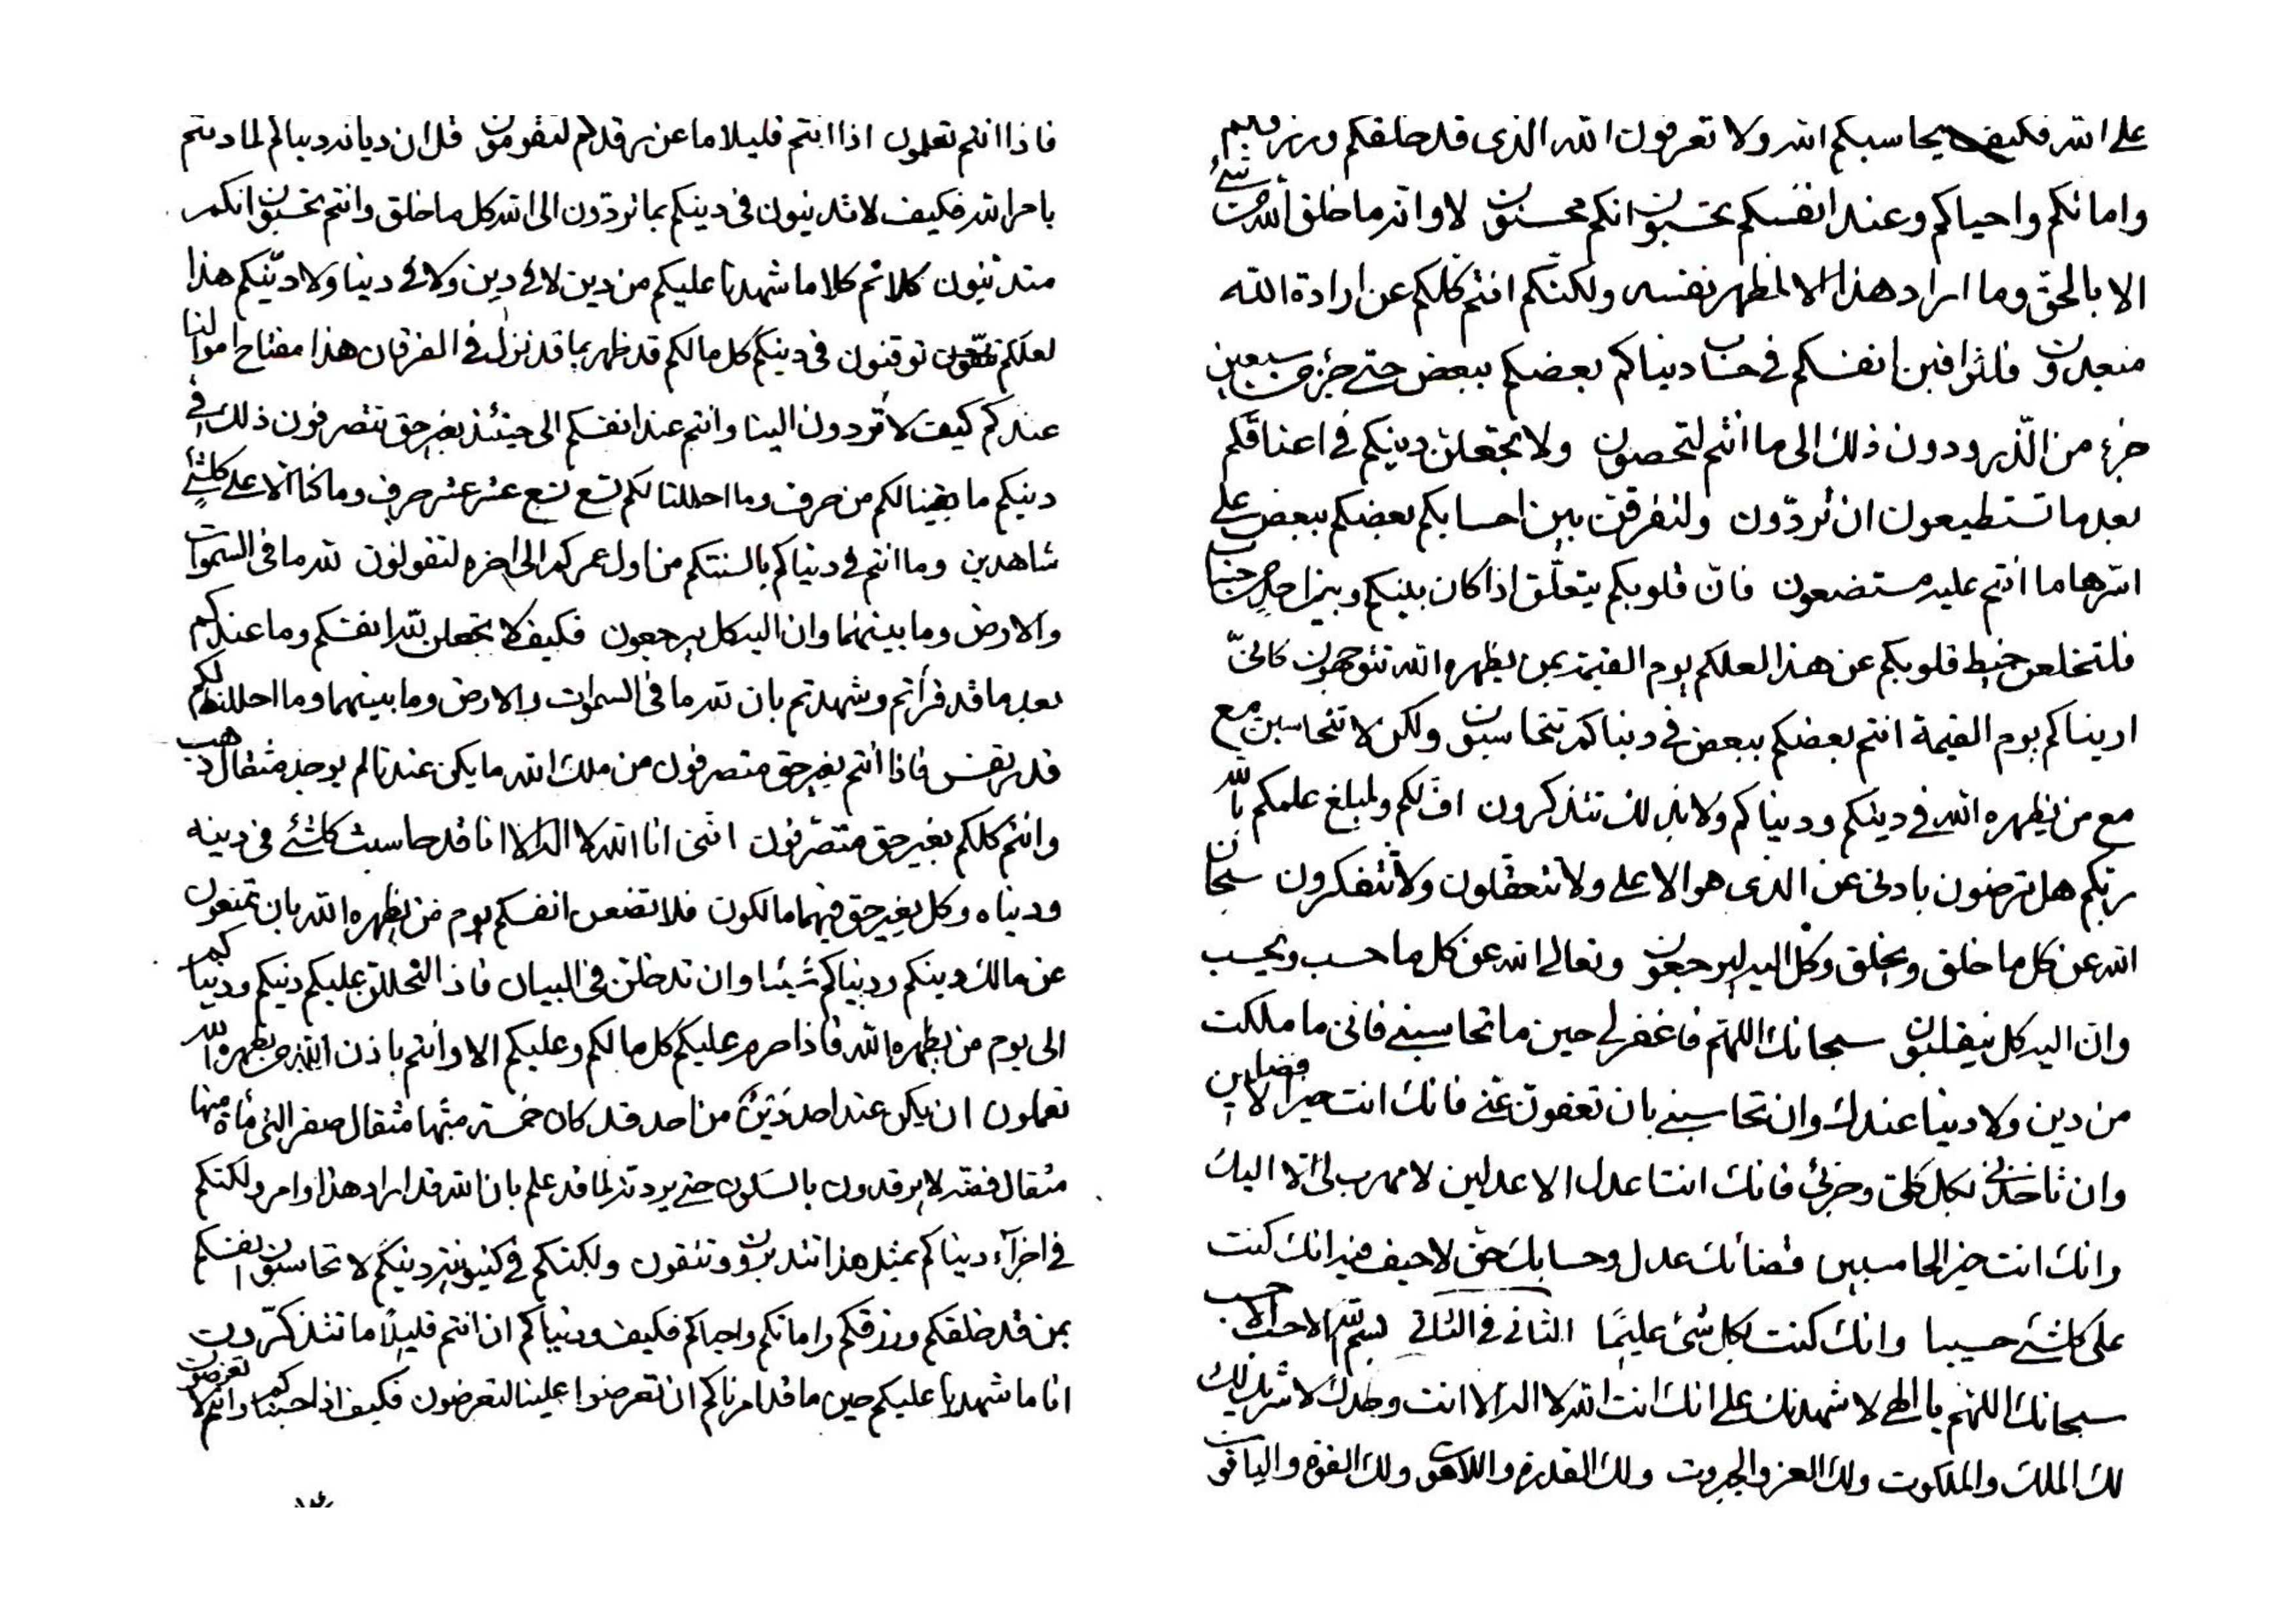 على الله فكيف يحاسبكم الله ولا تعرفون الله الذى قد خلقكم ورزقكم
واماتكم واحياكم وعند انفسكم تحتسبون انكم محسنون لا والله ما خلق الله من شئ
الا بالحق وما اراد هذا الا لمظهر نفسه ولكنكم انتم كلكم عن ارادة الله
منبعدون فلتراقبن انفسكم فى حساب دنياكم بعضكم ببعض حتى جزء من سبعين
جزء من الذر ودون ذلك الى ما انتم لتحصون ولا تجعلن دينكم فى اعناقكم
بعد ما تستطيعون ان تردون ولتفرقن بين احسابكم بعضكم ببعض على
انتم عليه مستضعون فان قلوبكم يتعلق اذا كان بينكم وبين احد حساب
فلتخلعن خيط قلوبكم عن هذا لعلكم يوم القيمة بمن يظهره الله تتوجهون كانى
اريناكم يوم القيمة انتم بعضكم ببعض فى دنياكم تتحاسبون ولكن لا تتحاسبن مع
مع من يظهره الله فى دينكم ودنياكم ولا بذلك تتذكرون اف لكم ولمبلغ علمكم بالله
ربكم هل ترضون بادنى عن الذى هو الاعلى ولا تتعقلون ولا تتفكرون سبحان
الله عن كل ما خلق ويخلق وكل اليه ليرجعون وتعالى الله عن كل ما حسب ويحسب
وان اليه كل لينقلبون سبحانك اللهم فاغفر لى حين ما تحاسبنى فانى ما ملكت
من دين ولا دينا عندك وان تحاسبنى بان تعفون عنى فانك انت خير الافضلين
وان تاخذنى بكل كلى وجزئى فانك انت اعدل الاعدلين لا مهرب لى الا اليك
وانك انت خير الحاسبين قضائك عدل وحسابك حق لا حيف فيه انك كنت
على كل شئ حسيبا وانك كنت بكل شئ عليما الثانى فى الثانى بسم الله الاحسب الاحسب
سبحانك اللهم يا الهى لاشهدنك على انك انت الله لا اله الا انت وحدك لا شريك لك
لك الملك والملكوت ولك العز والجبروت ولك القدرة واللاهوت ولك القوة والياقوت
فاذا انتم تعلمون اذا انتم قليلا ما عن مرقدكم لتقومون قل ان ديانه دنياكم لما دنتم
بامر الله فكيف لا تتدينون فى دينكم بما تردون الى الله كل ما خلق وانتم تحتسبون انكم
متدينون كلا ثم كلا ما شهدنا عليكم من دين لا فى دين ولا فى دينا ولا دينكم هذا
لعلكم تتقون توقنون فى دينكم كل مالكم قد ظهر بما قد نزل فى الفرقان هذا مفتاح اموالنا
عندكم كيف لا تردون الينا وانتم عند انفسكم الى حينئذ بغير حق تتصرفون ذلك فى
دينكم ما بقينا لكم من حرف وما احللنا لكم تسع تسع عشر عشر حرف وما كنا الا على كل شئ
شاهدين وما انتم فى دنياكم بالسنتكم من اول عمركم الى اخره لتقولون لله ما فى السموات
والارض وما بينهما وان اليه كل يرجعون فكيف لا تجعلن لله انفسكم وما عندكم
بعد ما قد قرأتم وشهدتم بان لله ما فى السموات والارض وما بينهما وما احللنا لكم
قدر نفس فاذا انتم بغير حق متصرفون من ملك الله ما يكن عندنا لم يوجد مثقال ذهب
وانتم كلكم بغير حق متصرفون اننى انا الله لا اله الا انا قد حاسبت كل شئ فى دينه
ودنياه وكل بغير حق فيهما مالكون فلا تضعن انفسكم يوم من يظهره الله بان تمنعون
عن مالك دينكم ودنياكم شيئا وان تدخلن فى البيان فاذا لتحللن عليكم دينكم ودنياكم
الى يوم من يظهره الله فاذا حرم عليكم كل مالكم وعليكم الا وانتم باذن الله من يظهره الله
تعملون ان يكن عند احد دين من احد قد كان خمسة مثقال صفر التى مأة منها
مثقال فضة لا يرقدون بالسكون حتى يرد لله لما قد علم بان الله قد اراد هذا وامر ولكنكم
فى اجزاء دنياكم بمثل هذا تتدبرون وتتقون ولكنكم فى كينونية دينكم لا تحاسبون انفسكم
بمن قد خلقكم ورزقكم واماتكم واحياكم فكيف ودنياكم ان انتم قليلا ما تتذكرون
انا ما شهدنا عليكم حين ما قد امرناكم ان تعرضوا علينا لتعرضون فكيف اذا حبنا كم وانتم لا تعرضون